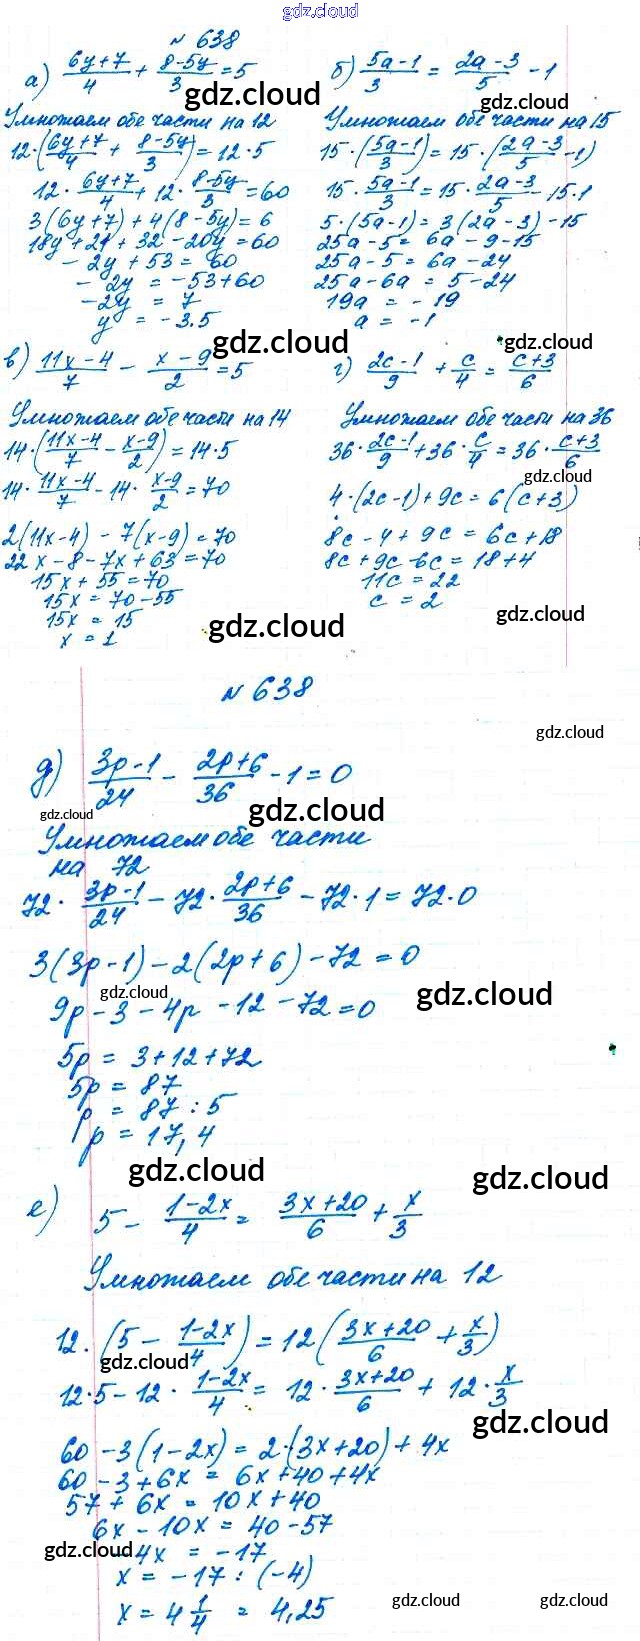 gdz.cloud
№ 638
а) (6y+7)/4 + (8-5y)/3 = 5
Умножаем обе части на 12
12·((6y+7)/4 + (8-5y)/3) = 12·5
12·(6y+7)/4 + 12·(8-5y)/3 = 60
3(6y+7)+4(8-5y)=6
18y+21+32-20y=60
-2y+53=60
-2y = -53+60
-2y = 7
y = -3.5
gdz.cloud
б) (5a-1)/3 = (2a-3)/5 - 1
Умножаем обе части на 15
15·((5a-1)/3) = 15·((2a-3)/5 - 1)
15·(5a-1)/3 = 15·(2a-3)/5 - 15·1
5·(5a-1) = 3(2a-3)-15
25a-5 = 6a-9-15
25a-5 = 6a-24
25a-6a = 5-24
19a = -19
a = -1
gdz.cloud
в) (11x-4)/7 - (x-9)/2 = 5
Умножаем обе части на 14
14·((11x-4)/7 - (x-9)/2) = 14·5
14·(11x-4)/7 - 14·(x-9)/2 = 70
2(11x-4)-7(x-9)=70
22x-8-7x+63=70
15x+55=70
15x = 70-55
15x = 15
x = 1
gdz.cloud
г) (2c-1)/9 + c/4 = (c+3)/6
Умножаем обе части на 36
36·(2c-1)/9 + 36·c/4 = 36·(c+3)/6
gdz.cloud
4·(2c-1)+9c = 6(c+3)
8c-4+9c = 6c+18
8c+9c-6c = 18+4
11c = 22
c = 2
gdz.cloud
gdz.cloud
№ 638
gdz.cloud
д) (3p-1)/24 - (2p+6)/36 - 1 = 0
gdz.cloud
gdz.cloud
Умножаем обе части
на 72
72·(3p-1)/24 - 72·(2p+6)/36 - 72·1 = 72·0
3(3p-1)-2(2p+6)-72=0
gdz.cloud
gdz.cloud
9p-3-4p-12-72=0
5p = 3+12+72
5p = 87
p = 87 : 5
p = 17,4
gdz.cloud
gdz.cloud
е) 5 - (1-2x)/4 = (3x+20)/6 + x/3
Умножаем обе части на 12
12·(5 - (1-2x)/4) = 12((3x+20)/6 + x/3)
gdz.cloud
12·5-12·(1-2x)/4 = 12·(3x+20)/6 + 12·x/3
gdz.cloud
gdz.cloud
60-3(1-2x) = 2·(3x+20)+4x
60-3+6x = 6x+40+4x
57+6x = 10x+40
6x-10x = 40-57
gdz.cloud
-4x = -17
x = -17 : (-4)
x = 4 1/4 = 4,25
gdz.cloud
gdz.cloud